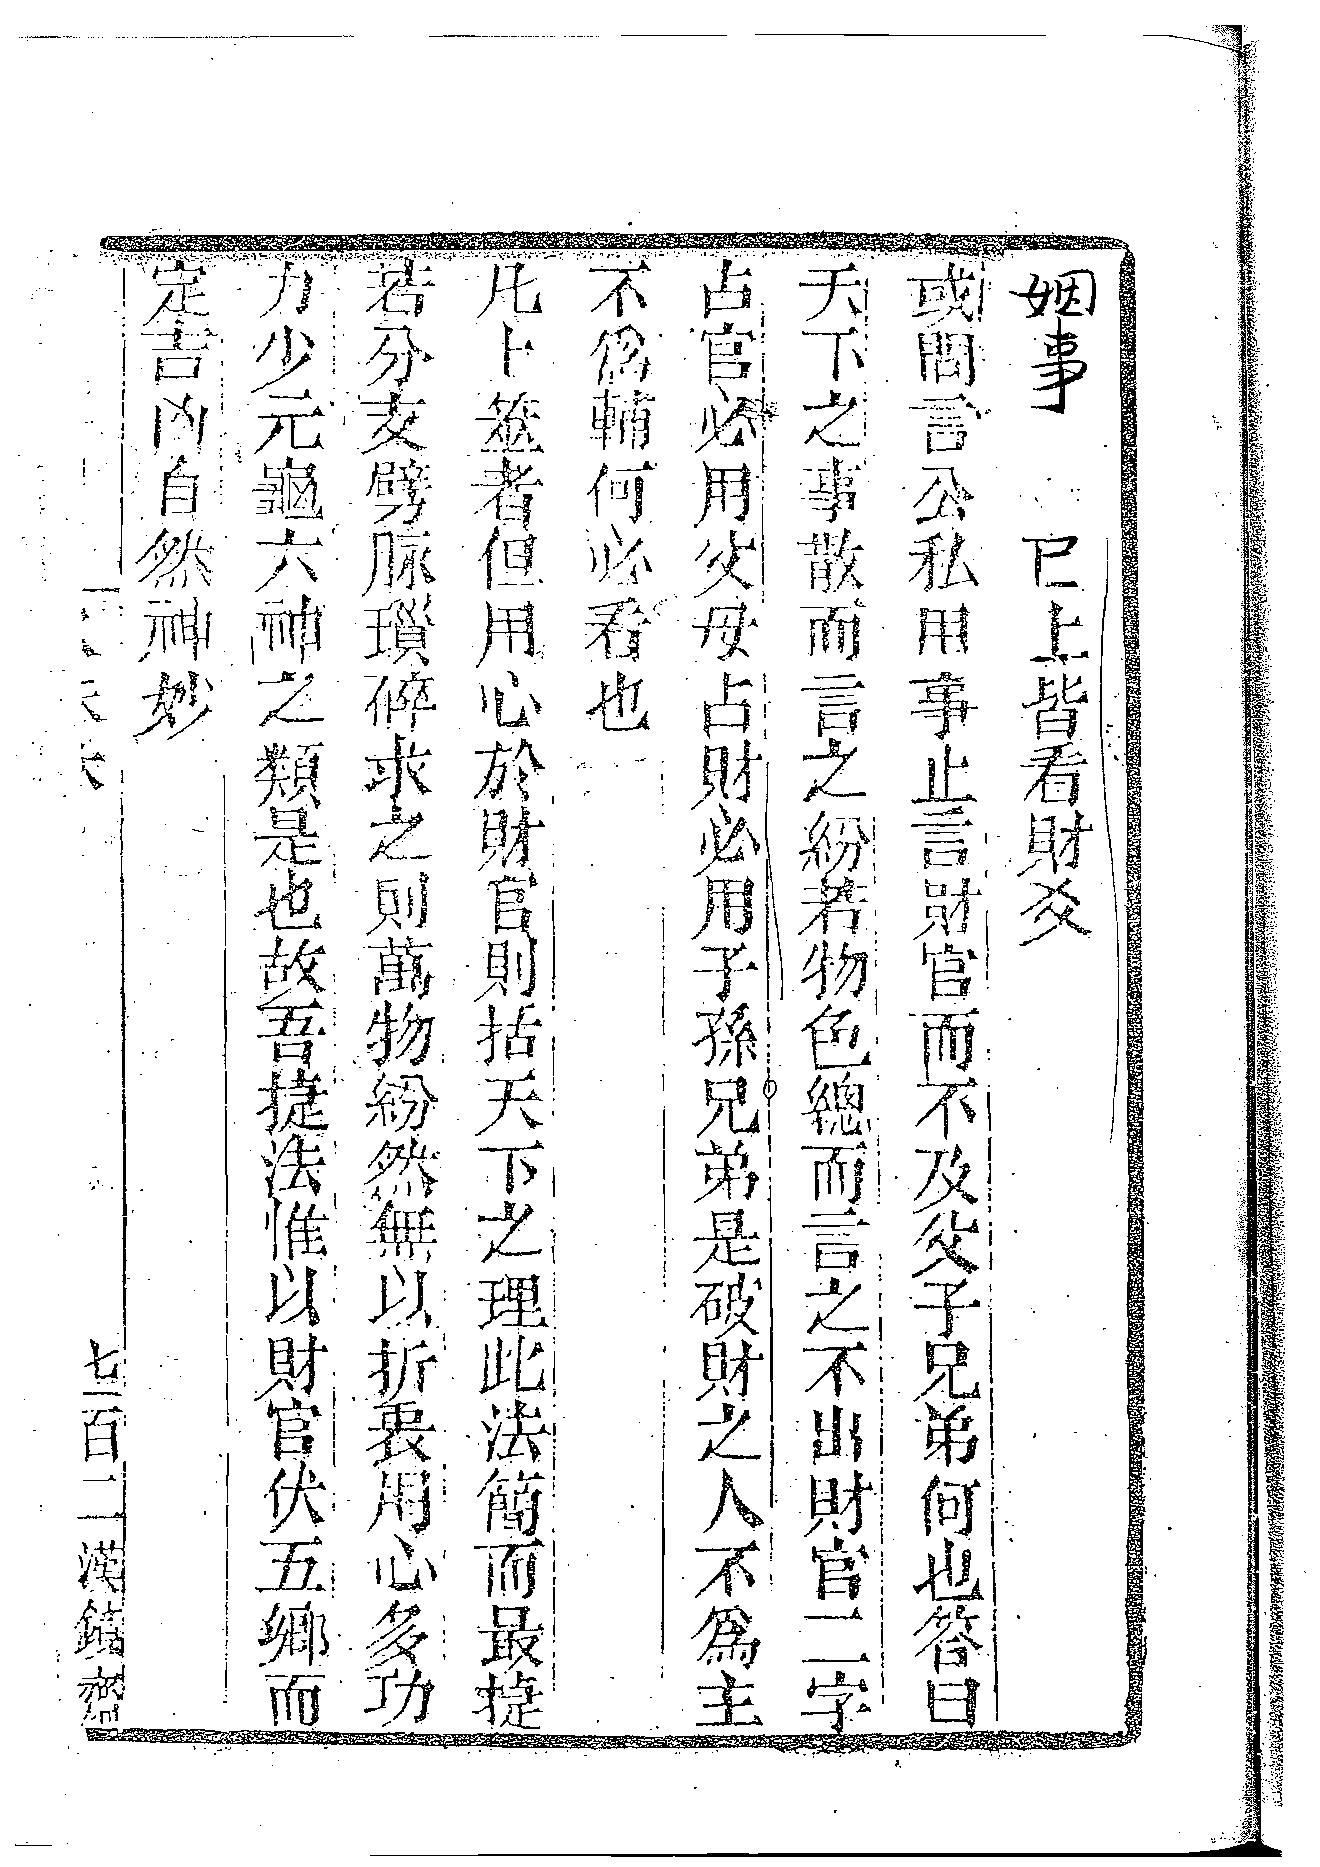 姻事　已上皆看財爻
或問言公私用事止言財官而不及父子兄弟何也答曰
天下之事散而言之紛若物色總而言之不出財官二字
占官必用父母占財必用子孫兄弟是破財之人不為主
不為輔何必看也
凡卜筮者但用心於財官則括天下之理此法簡而最捷
若分支劈脉瑣碎求之則萬物紛然無以折衷用心多功
力少元龜六神之類是也故吾捷法惟以財官伏五鄉而
定吉凶自然神妙
七百二漢鏡齋